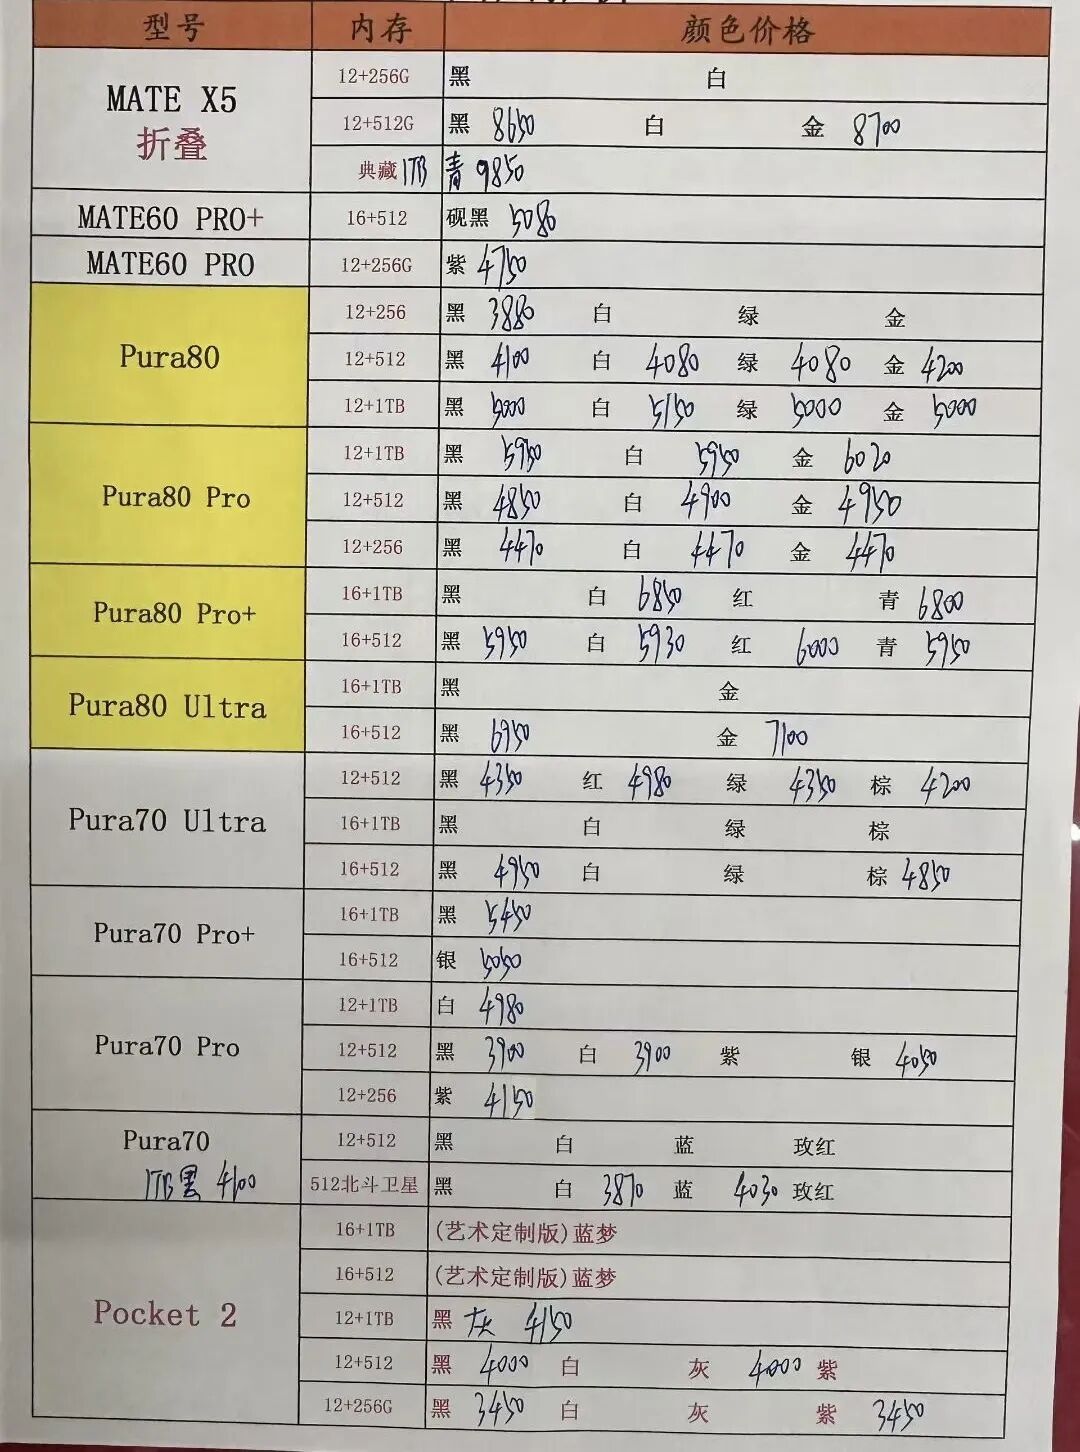 型号 内存 颜色价格
MATE X5 折叠
12+256G 黑 白
12+512G 黑 8650 白 金 8700
典藏 1TB 青 9850
MATE60 PRO+ 16+512 砚黑 5080
MATE60 PRO 12+256G 紫 4750
Pura80
12+256 黑 3880 白 绿 金
12+512 黑 4100 白 4080 绿 4080 金 4200
12+1TB 黑 5000 白 5150 绿 5000 金 5000
Pura80 Pro
12+1TB 黑 5950 白 5950 金 6020
12+512 黑 4850 白 4900 金 4950
12+256 黑 4470 白 4470 金 4470
Pura80 Pro+
16+1TB 黑 白 6850 红 青 6800
16+512 黑 5950 白 5930 红 6000 青 5950
Pura80 Ultra
16+1TB 黑 金
16+512 黑 6950 金 7100
Pura70 Ultra
12+512 黑 4350 红 4980 绿 4350 棕 4200
16+1TB 黑 白 绿 棕
16+512 黑 4950 白 绿 棕 4850
Pura70 Pro+
16+1TB 黑 5450
16+512 银 5050
Pura70 Pro
12+1TB 白 4980
12+512 黑 3900 白 3900 紫 银 4050
12+256 紫 4150
Pura70
1TB黑 4100
12+512 黑 白 蓝 玫红
512北斗卫星 黑 白 3870 蓝 4030 玫红
Pocket 2
16+1TB (艺术定制版)蓝梦
16+512 (艺术定制版)蓝梦
12+1TB 黑 灰 4150
12+512 黑 4000 白 灰 4000 紫
12+256G 黑 3450 白 灰 紫 3450